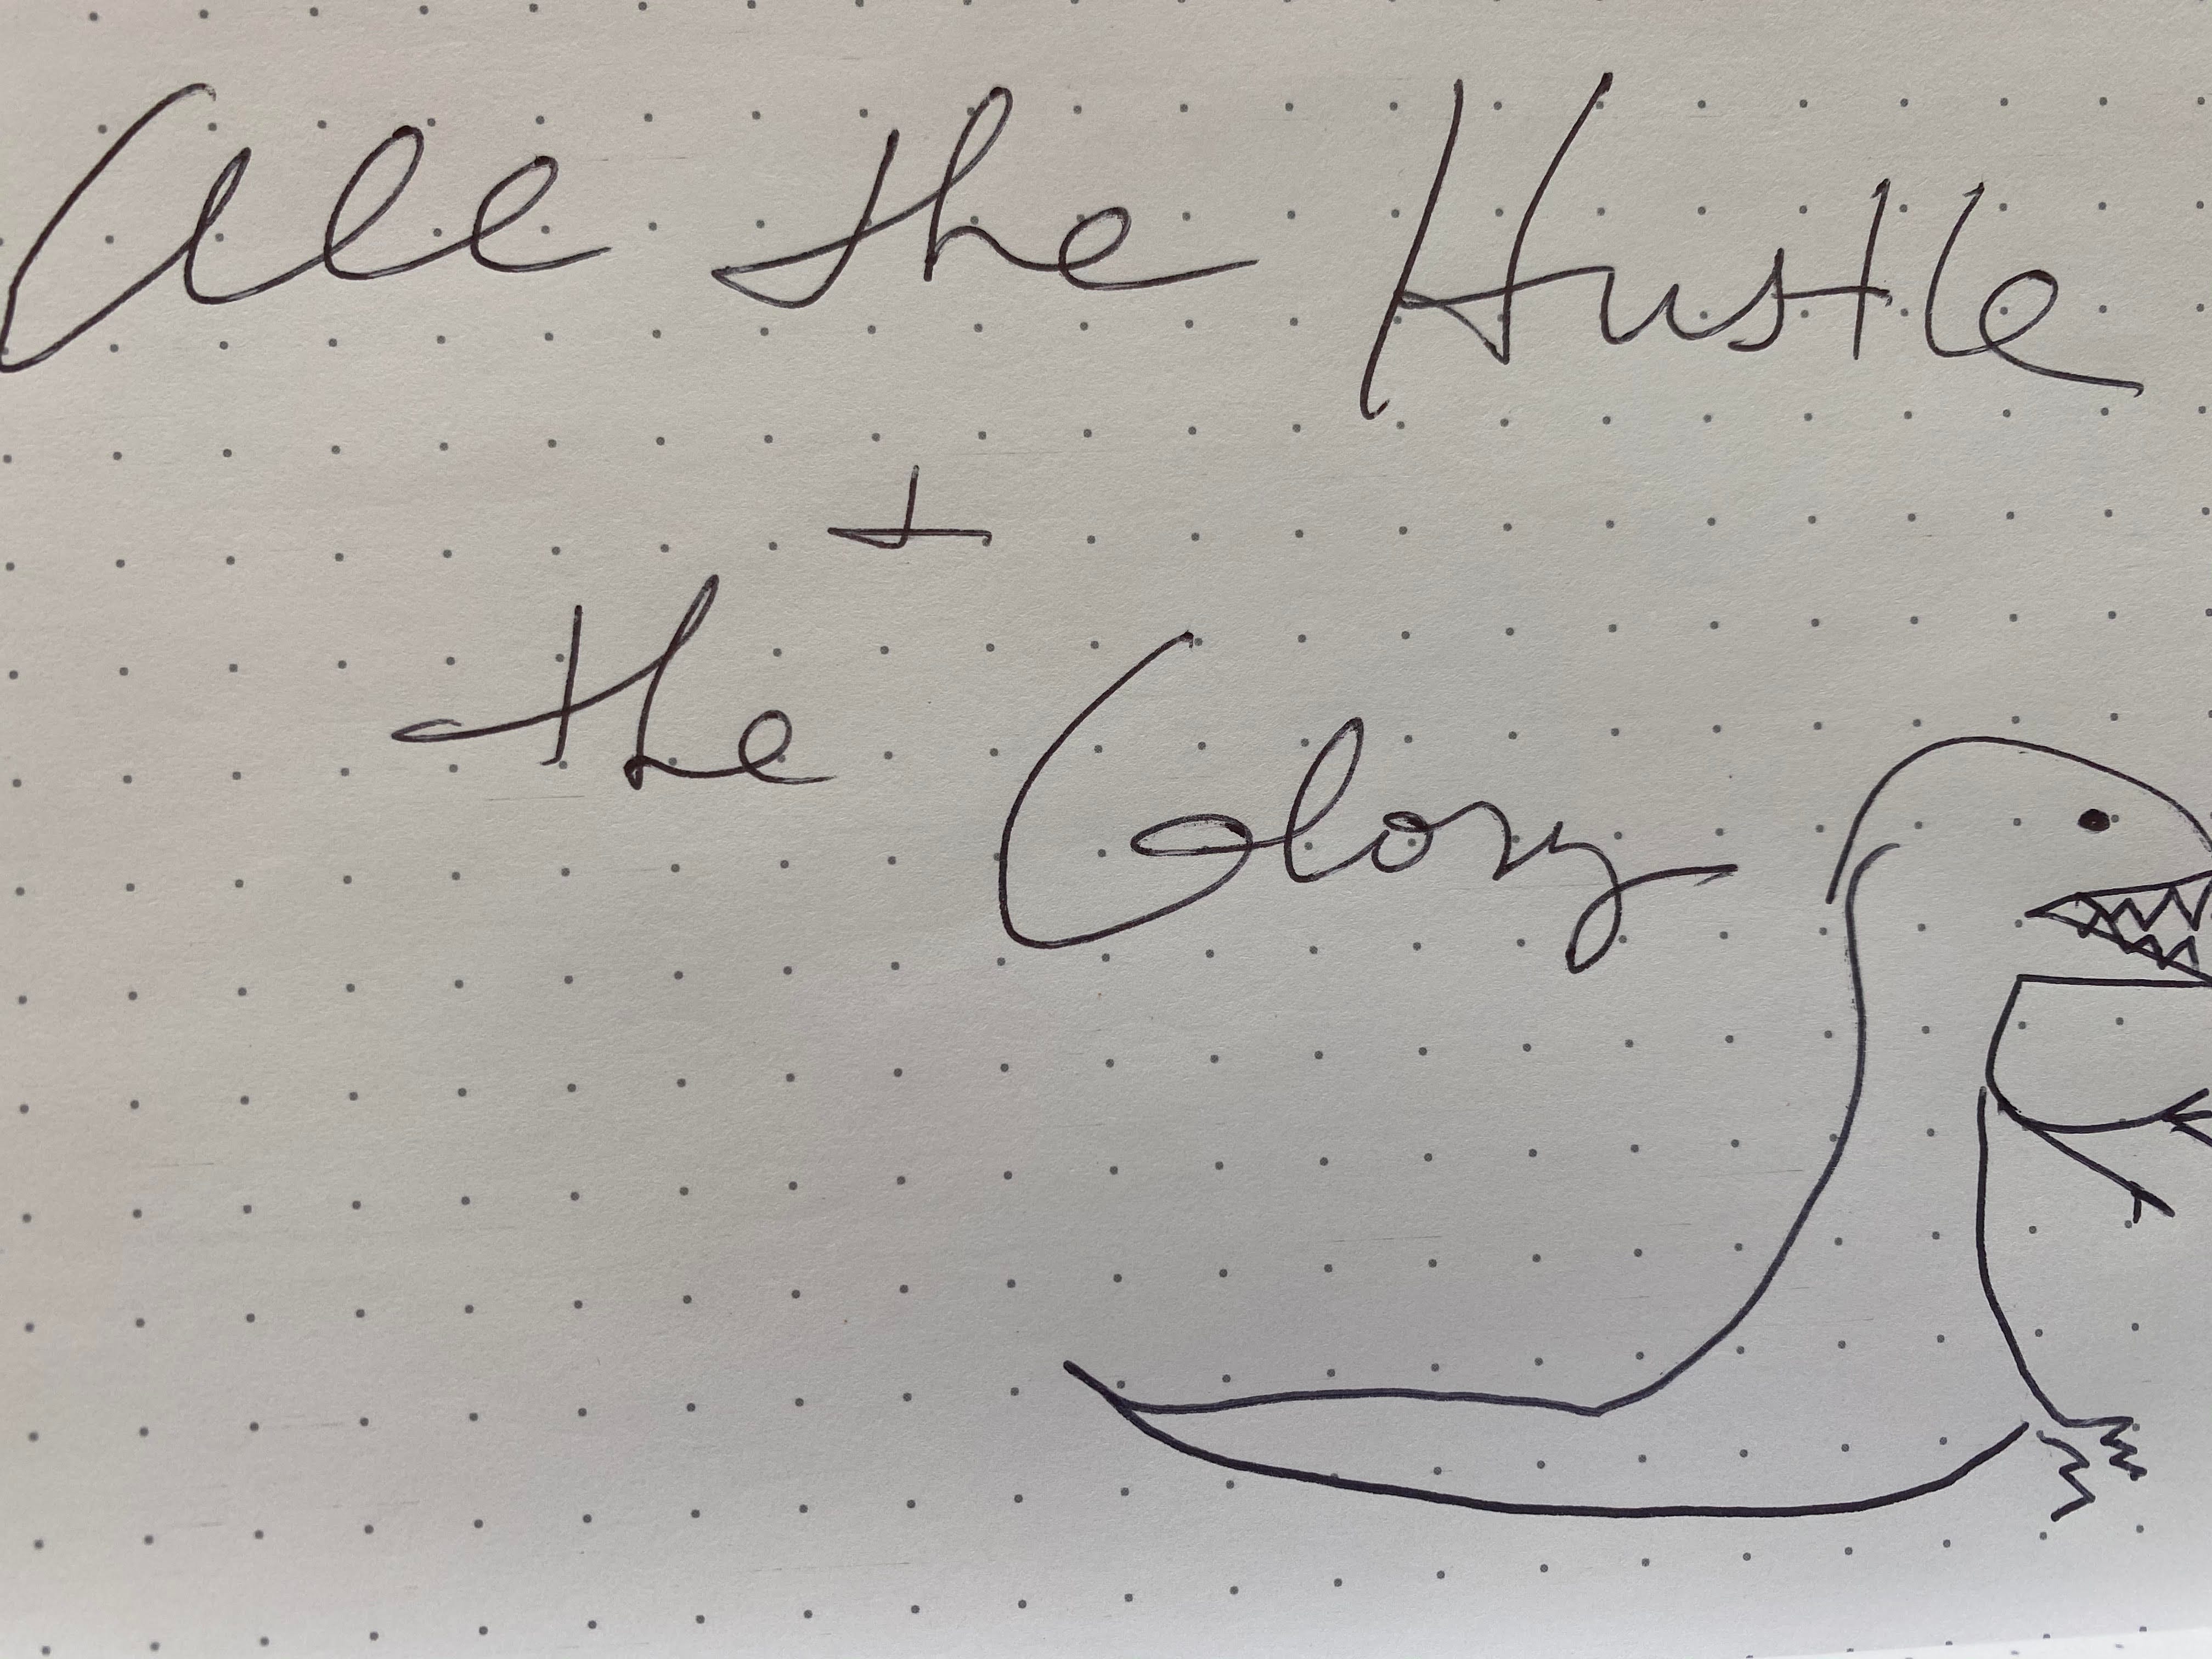 All the Hustle
+
the Glory